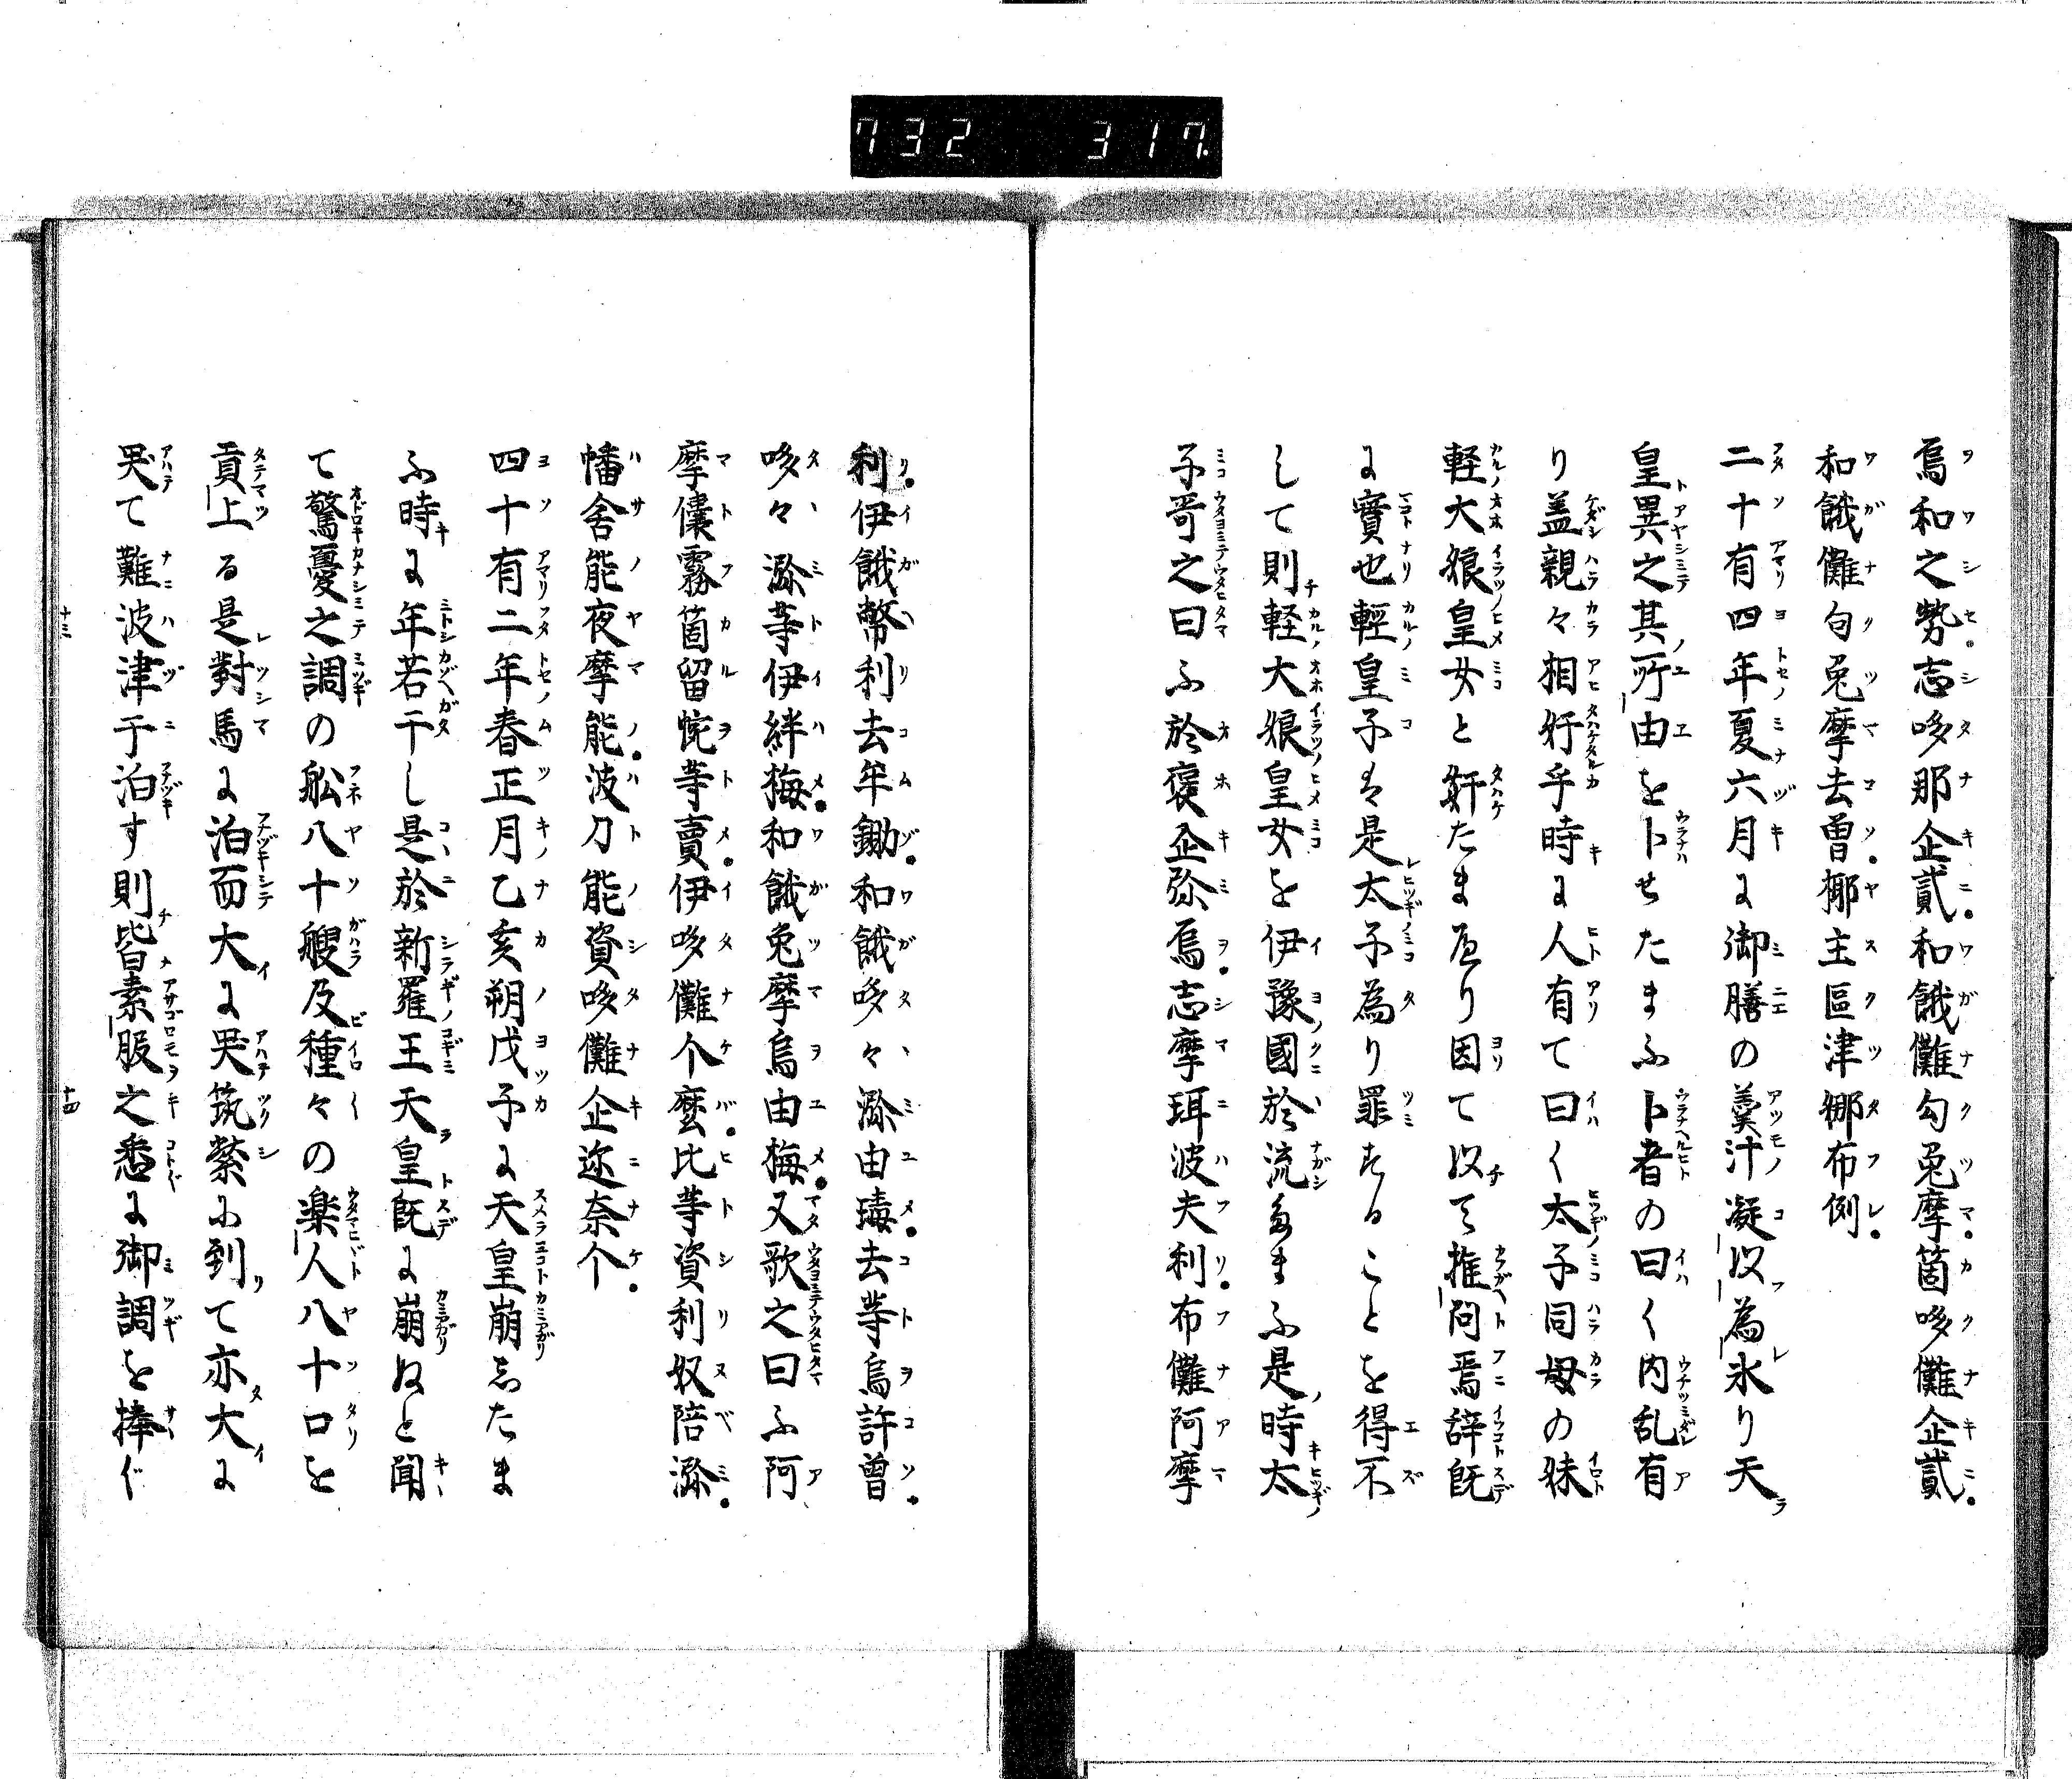 732 317.
烏和之勢。志哆那企貳。和餓儺勾兎摩。箇哆儺企貳。
和餓儺勾兎摩去曽。椰主區津娜布例。
二十有四年夏六月に御膳の羹汁凝以為氷り天
皇異之其所由を卜せたまふ卜者の曰く内乱有
り盖親々相奸乎時に人有て曰く太子同母の妹
軽大娘皇女と奸たまへり因て以て推問焉辞既
に實也輕皇子は是太子為り罪することを得不
して則軽大娘皇女を伊豫國於流たまふ是時太
子哥之曰ふ於褒企弥烏。志摩珥波夫利。布儺阿摩
利。伊餓幣利去牟鋤。和餓哆々瀰由瑇。去等烏許曽。
哆々瀰等伊絆梅。和餓兎摩烏由梅。又歌之曰ふ阿
摩儾霧箇留惋等賣。伊哆儺个麼。比等資利奴陪瀰。
幡舎能夜摩能。波刀能資哆儺企迩奈个。
四十有二年春正月乙亥朔戊子に天皇崩志たま
ふ時に年若干し是於新羅王天皇既に崩ぬと聞
て驚憂之調の舩八十艘及種々の楽人八十口を
貢上る是對馬に泊而大に哭筑紫に到て亦大に
哭て難波津于泊す則皆素服之悉に御調を捧ぐ
十三
十四